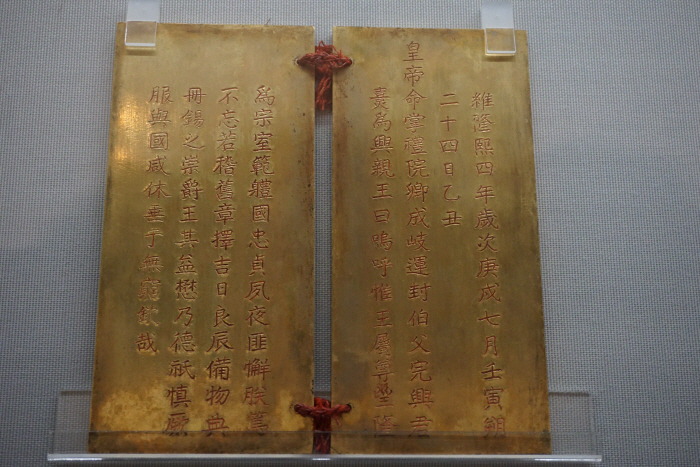 維隆熙四年歲次庚戌七月壬寅朔
二十四日乙丑
皇帝命掌禮院卿成岐運封伯父完興君
熹爲興親王曰嗚呼惟王屬尊望隆
爲宗室範軆國忠貞夙夜匪懈朕篤
不忘若稽舊章擇吉日良辰備物典
冊錫之崇爵王其益懋乃德祗慎厥
服與國咸休垂于無窮欽哉